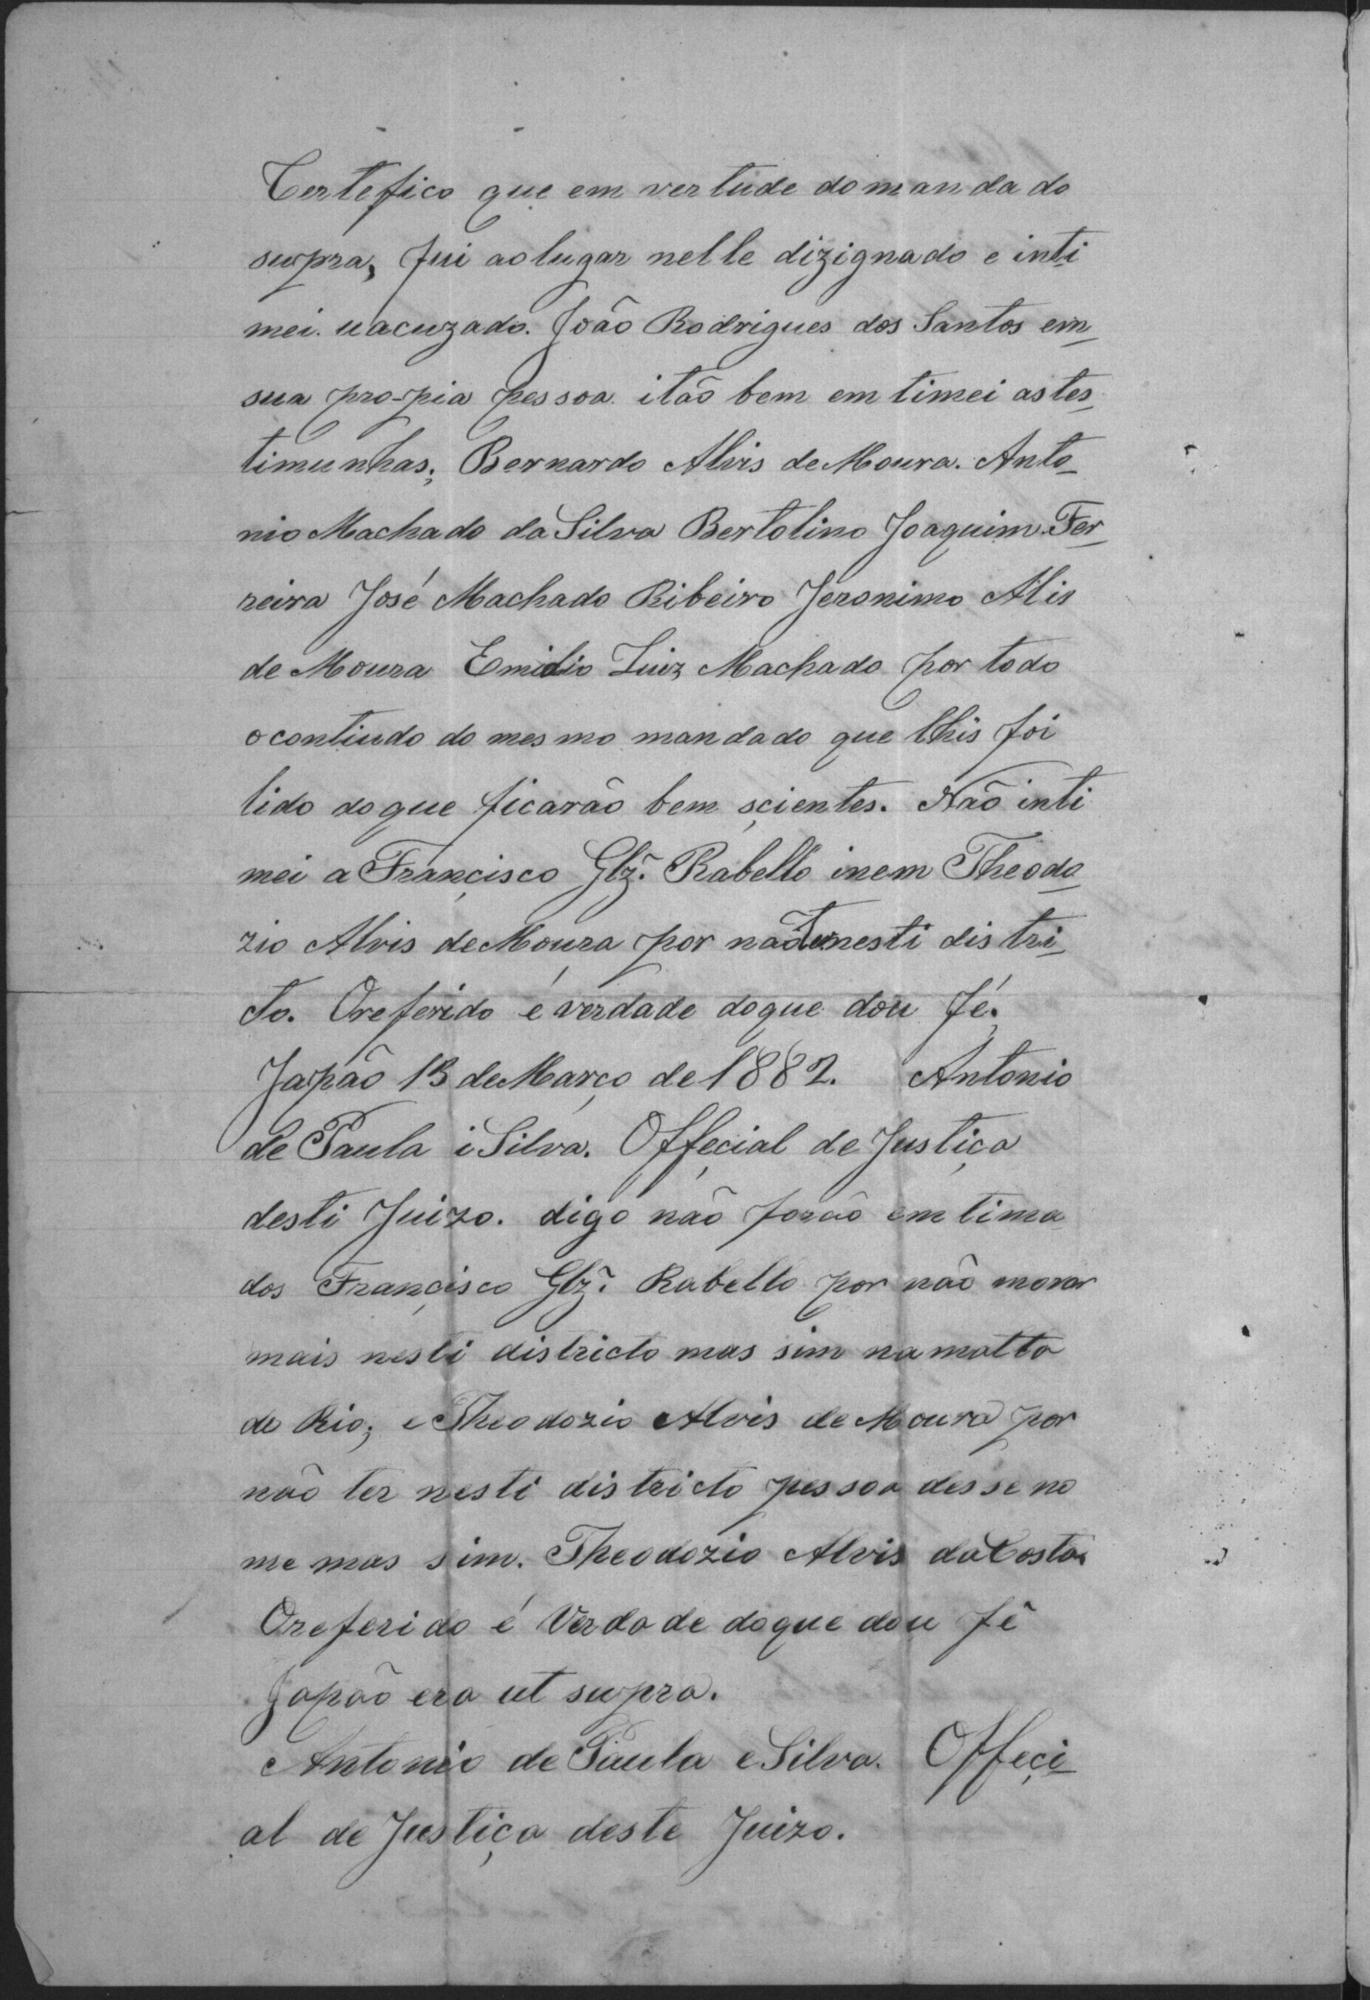 Certefico que em vertude do mandado
supra, fui ao lugar nelle dizignado e inti
mei u acuzado. João Rodrigues dos Santos em
sua propia pessoa. itão bem em timei as tes
timunhas; Bernardo Alvis de Moura. Anto
nio Machado da Silva Bertolino Joaquim Fer
reira José Machado Ribeiro Jeronimo Alis
de Moura Emidio Luiz Machado por todo
o contiudo do mesmo mandado que lhis foi
lido do que ficarão bem scientes. Não inti
mei a Françisco Glz. Rabello inem Theodo
zio Alvis de Moura por não nesti distri
cto. O referido é verdade do que dou fé.
Japão 13 de Março de 1882. Antonio
de Paula i Silva. Offeçial de Justiça
desti Juizo. digo não forão em tima
dos Françisco Glz. Rabello por não morar
mais nesti districto mas sim na matta
do Rio; e Theodozio Alvis de Moura por
não ter nesti districto pessoa desse no
me mas sim. Theodozio Alvis da Costa
O referido é Verdade do que dou fé
Japão era ut supra.
Antonio de Paula e Silva. Offeçi
al de Justiça deste Juizo.